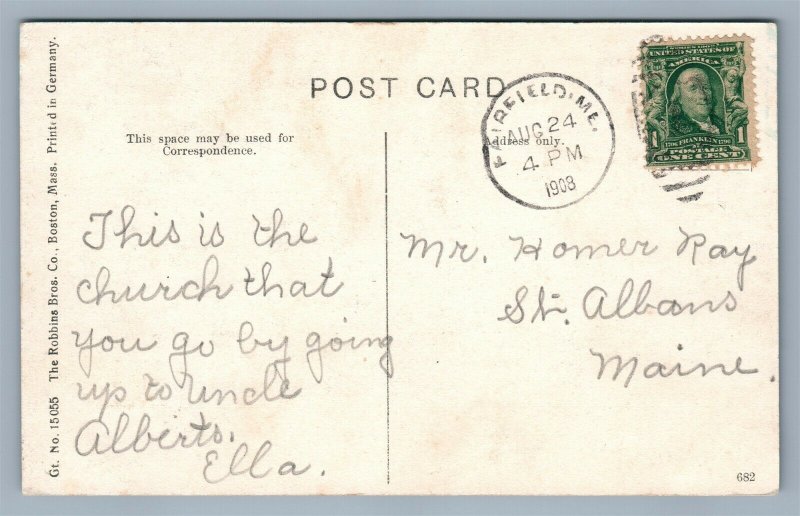 POST CARD
This space may be used for
Correspondence.
Address only.
FAIRFIELD, ME.
AUG 24
4 PM
1908
UNITED STATES OF
AMERICA
1 FRANKLIN 1
POSTAGE
ONE CENT
This is the
church that
you go by going
up to uncle
Alberts.
Ella.
Mr. Homer Ray
St. Albans
Maine.
Gt. No. 15055 The Robbins Bros. Co., Boston, Mass. Printed in Germany.
682